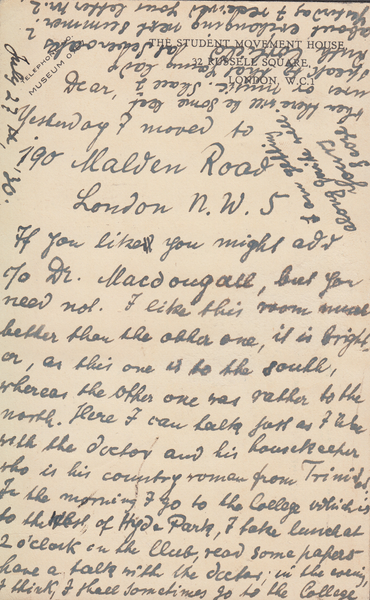 THE STUDENT MOVEMENT HOUSE,
32 RUSSELL SQUARE,
LONDON, W.C.1
TELEPHONE
MUSEUM
July 27th, '30.
Dear,
Yesterday I moved to
190 Malden Road
London N.W. 5
If you like, you might add
c/o Dr. Macdougall, but you
need not. I like this room much
better than the other one, it is bright-
er, as this one is to the south,
whereas the other one was rather to the
north. Here I can talk just as I like
with the doctor and his housekeeper
who is his country woman from Trinidad.
In the morning I go to the College which is
to the West of Hyde Park, I take lunch at
2 o'clock in the Club, read some papers
have a talk with the doctor; in the evening,
I think, I shall sometimes go to the College
when there will be some
music. Shore
speak
about exchanging next summer?
Yesterday I received your letter Nr. 2.
I am getting
along quite well
Yours